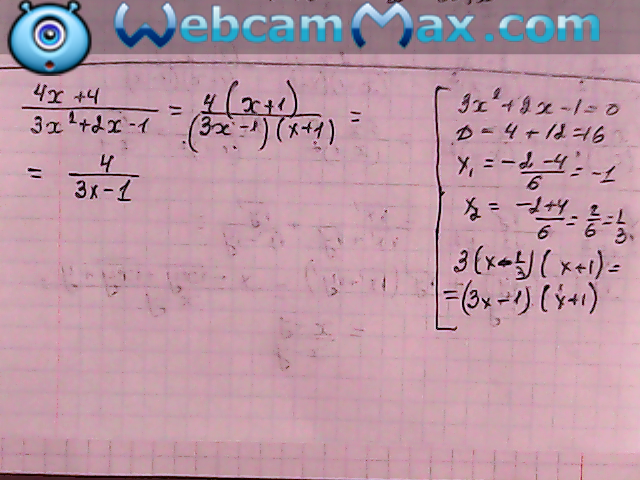 WebcamMax.com
(4x + 4)/(3x² + 2x - 1) = 4(x+1)/((3x - 1)(x+1)) =
= 4/(3x - 1)
3x² + 2x - 1 = 0
D = 4 + 12 = 16
x₁ = (-2 - 4)/6 = -1
x₂ = (-2+4)/6 = 2/6 = 1/3
3(x - 1/3)(x+1) =
= (3x - 1)(x+1)